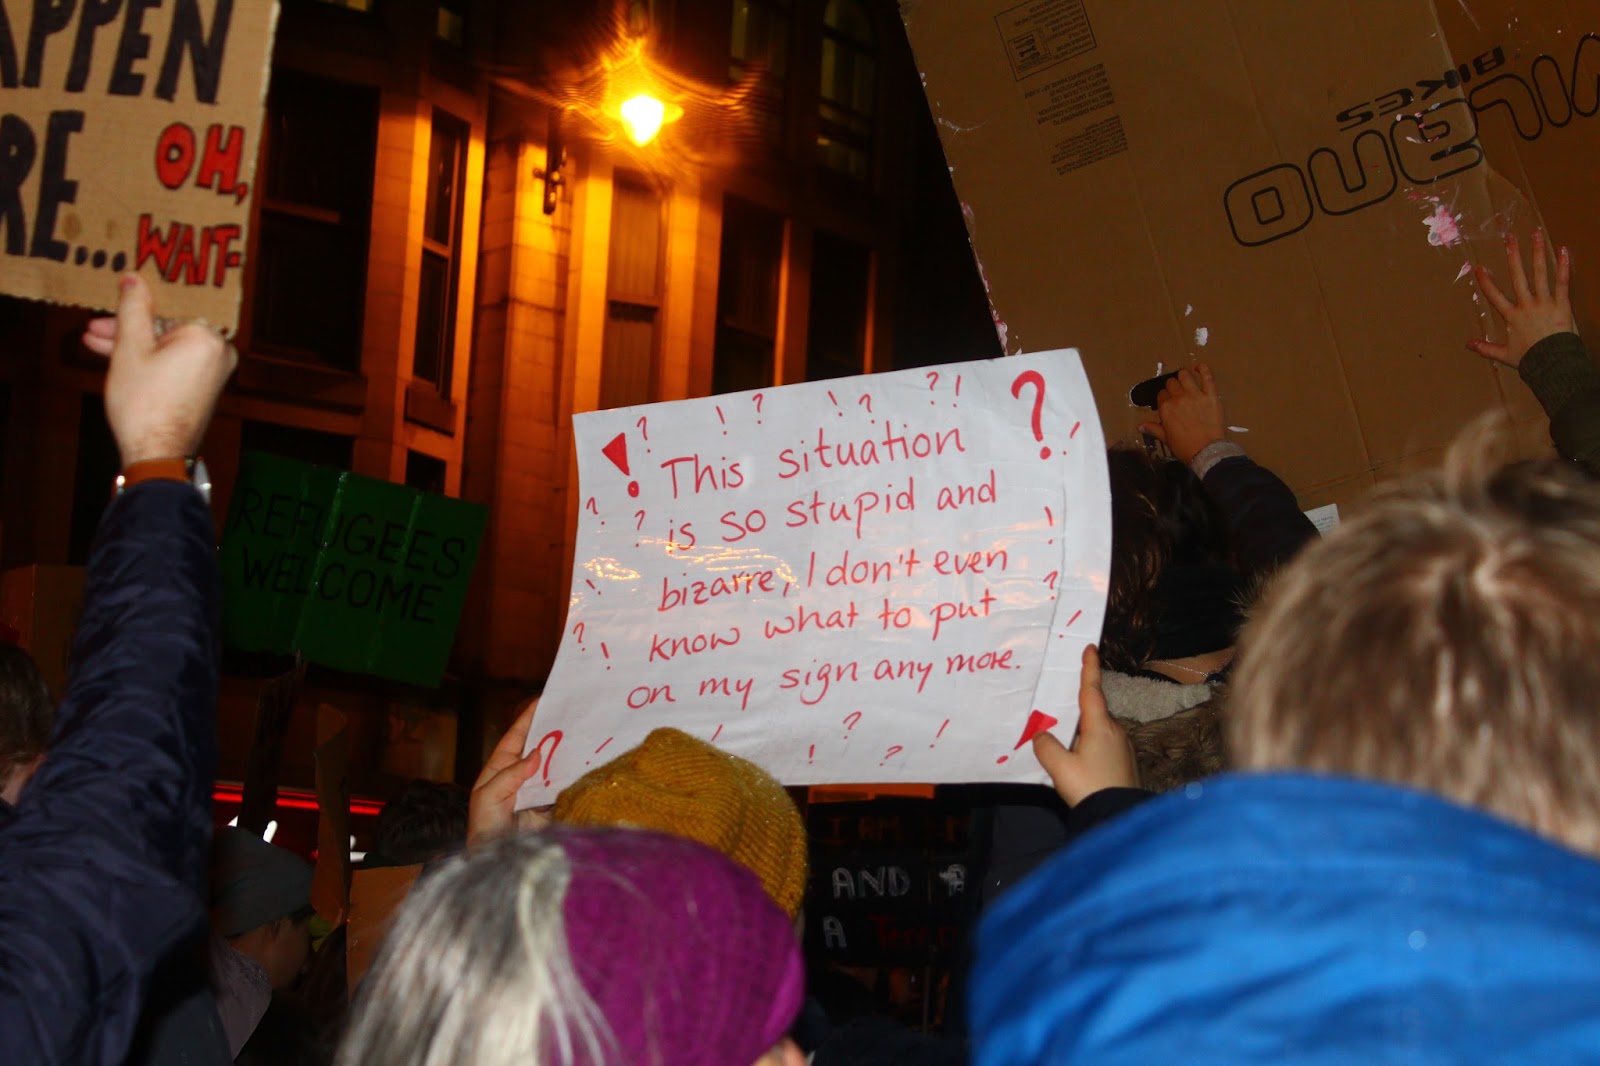 APPEN
RE...
OH,
WAIT-
BIKES
REFUGEES
WELCOME
This situation
is so stupid and
bizarre, I don't even
know what to put
on my sign any more.
I AM
AND
A